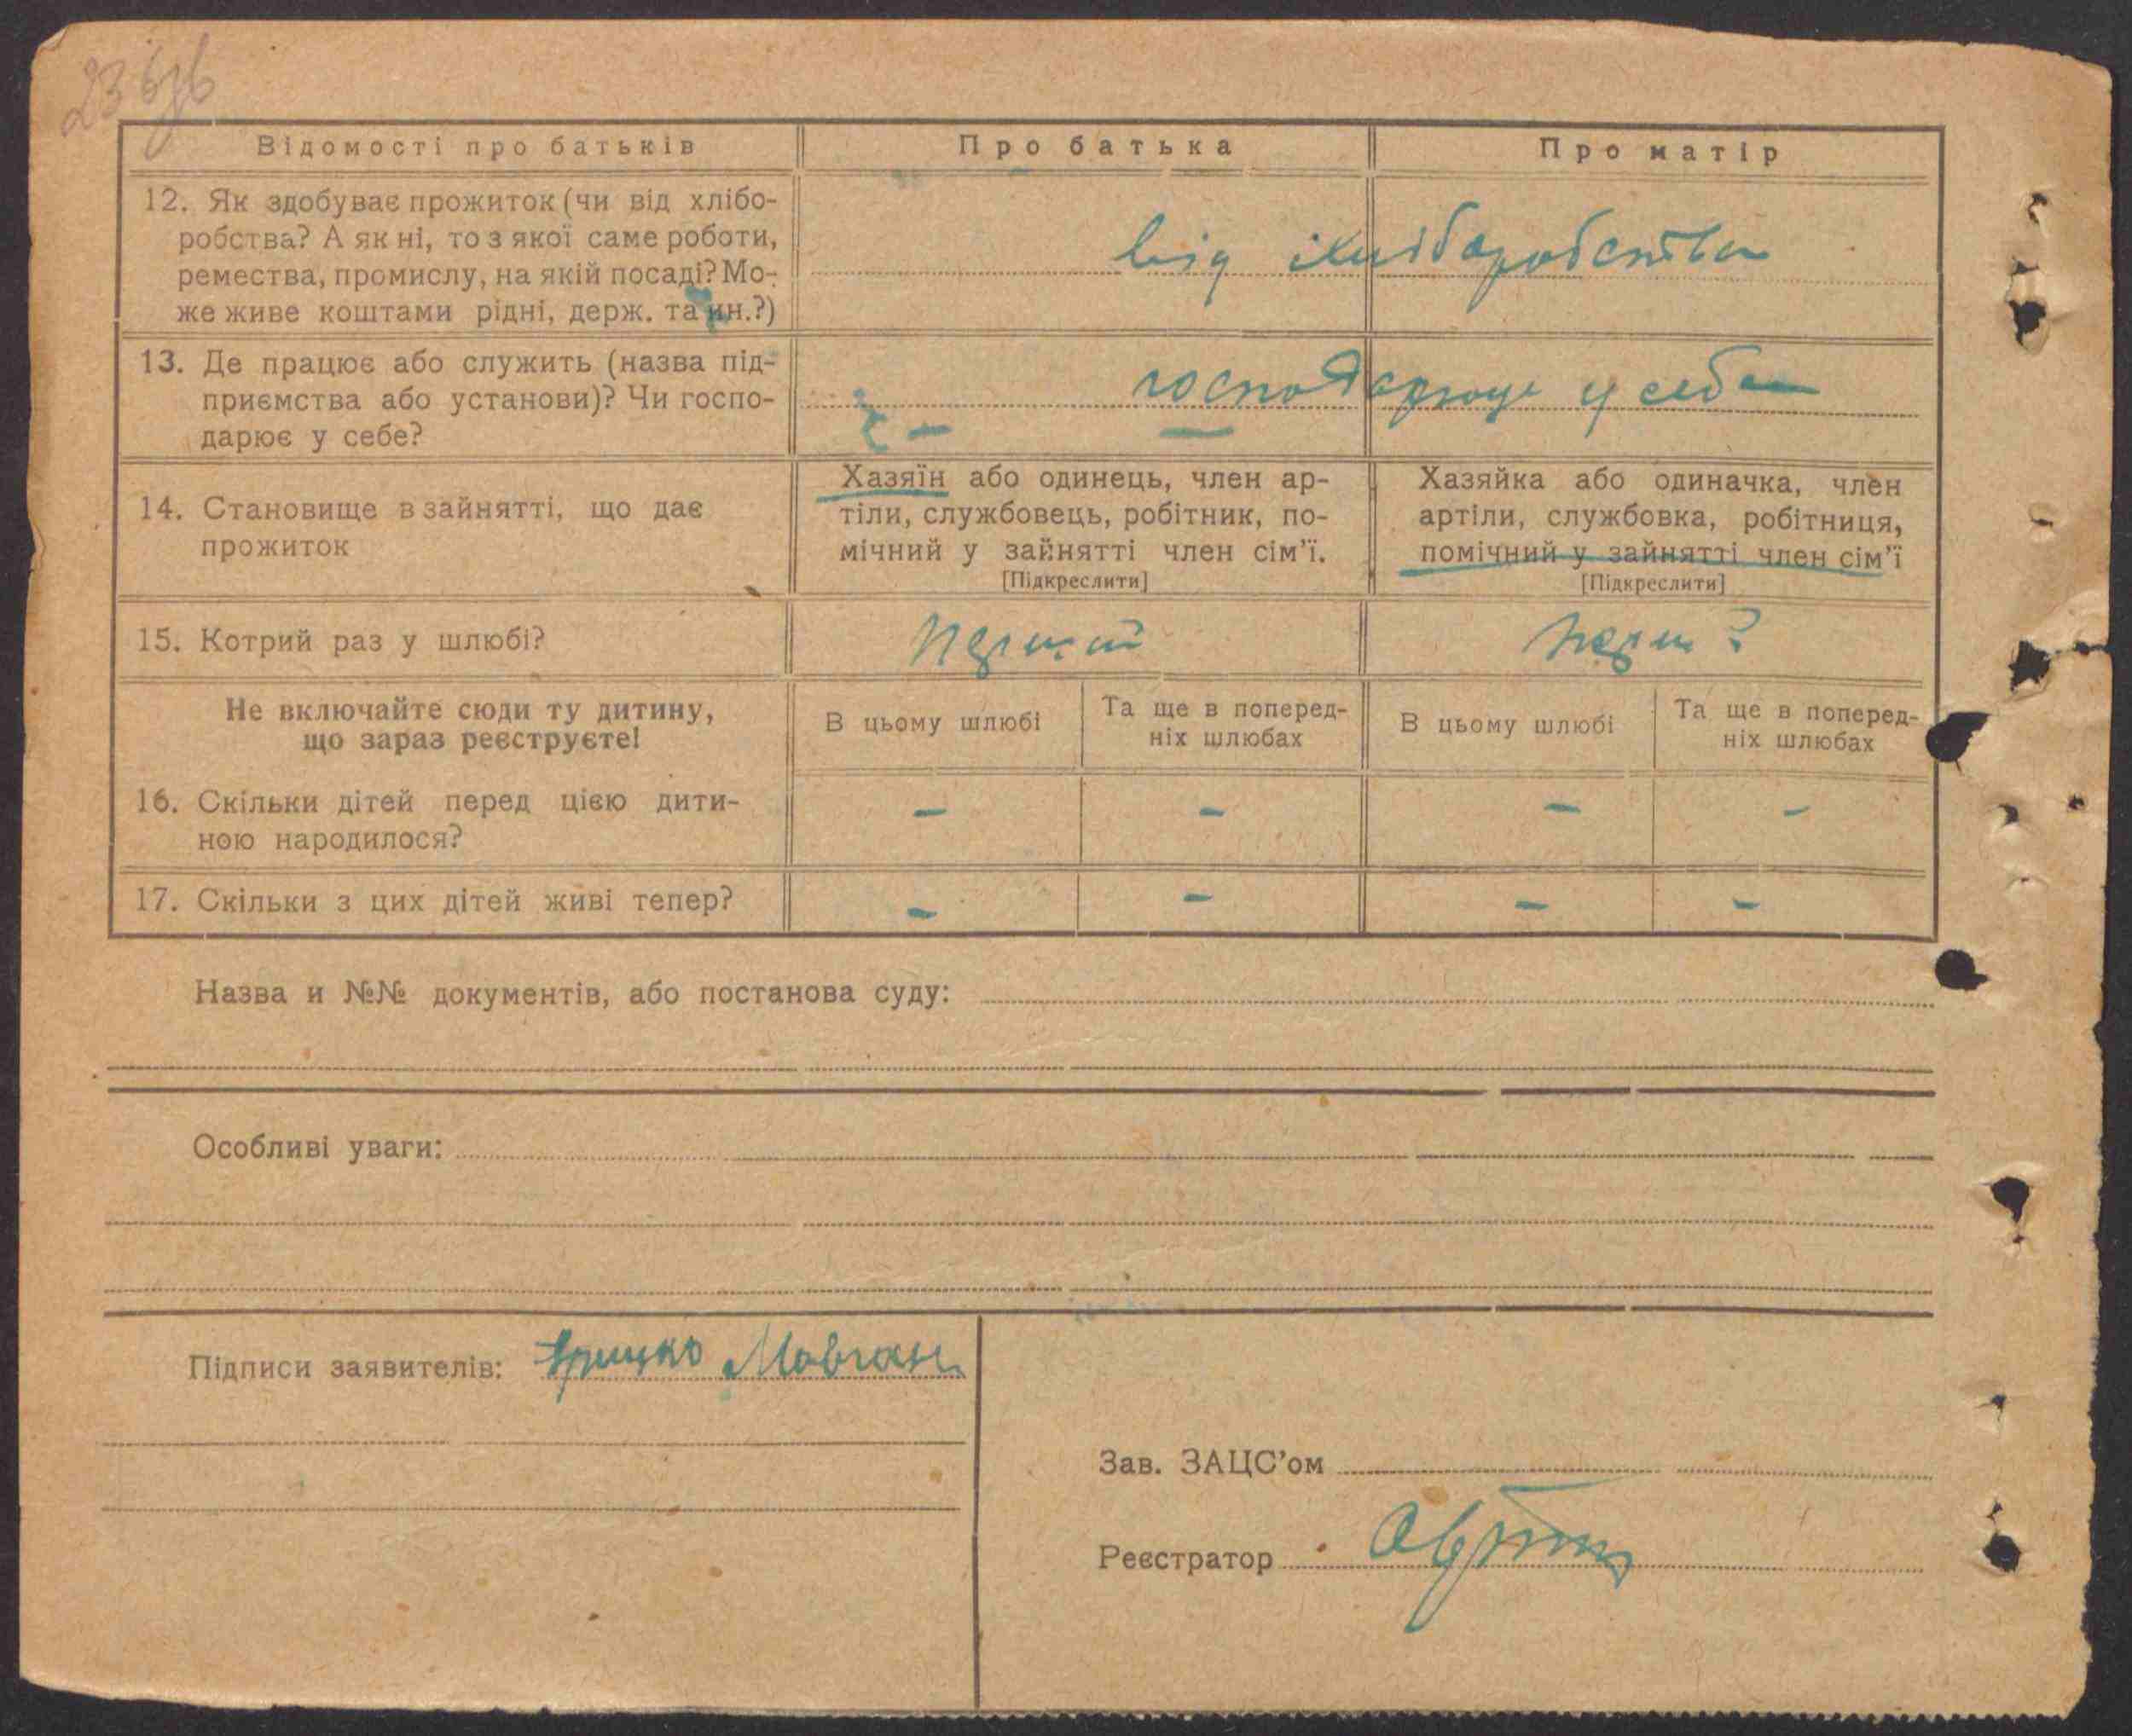 Відомості про батьків
Про батька
Про матір
12. Як здобуває прожиток (чи від хлібо-
робства? А як ні, то з якої саме роботи,
ремества, промислу, на якій посаді? Мо-
же живе коштами рідні, держ. та ин.?)
від хліборобства
13. Де працює або служить (назва під-
приємства або установи)? Чи госпо-
дарює у себе?
господарює у себе
14. Становище в зайнятті, що дає
прожиток
Хазяїн або одинець, член ар-
тіли, службовець, робітник, по-
мічний у зайнятті член сім'ї.
[Підкреслити]
Хазяйка або одиначка, член
артіли, службовка, робітниця,
помічний у зайнятті член сім'ї
[Підкреслити]
15. Котрий раз у шлюбі?
Перший
Не включайте сюди ту дитину,
що зараз реєструєте!
В цьому шлюбі
Та ще в поперед-
ніх шлюбах
В цьому шлюбі
Та ще в поперед-
ніх шлюбах
16. Скільки дітей перед цією дити-
ною народилося?
– – – –
17. Скільки з цих дітей живі тепер?
– – – –
Назва и №№ документів, або постанова суду:
Особливі уваги:
Підписи заявителів: Грицко Мовчан
Зав. ЗАЦС'ом
Реєстратор